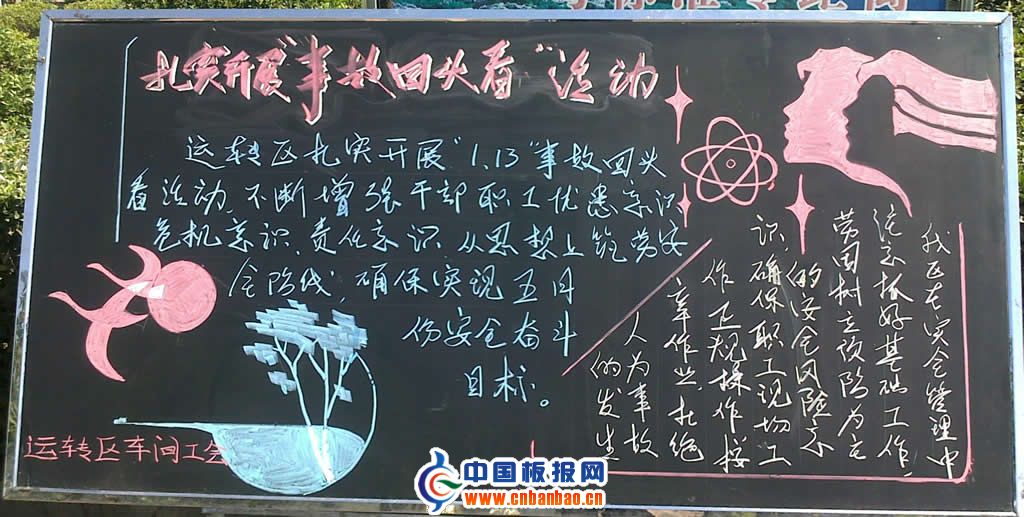 扎实开展"事故回头看"活动
运转区扎实开展"1.13"事故回头
看活动,不断增强干部职工忧患意识
危机意识,责任意识,从思想上筑劳安
全防线,确保实现五月
份安全奋斗
目标。
我区在安全管理中
注意抓好基础工作
劳固树立预防为主
的安全风险意
识,确保职工现场工
作卫规操作按
章作业杜绝
人为事故
的发生
运转区车间工会
中国板报网
www.cnbanbao.cn